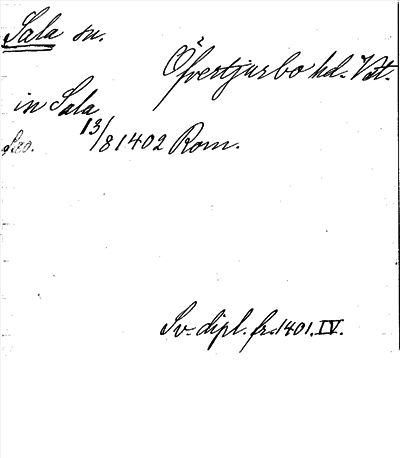 Sala sn.
Öfvertjurbo hd. Vst.
in Sala
13/8 1402 Rom.
Sv. dipl. fr. 1401. IV.